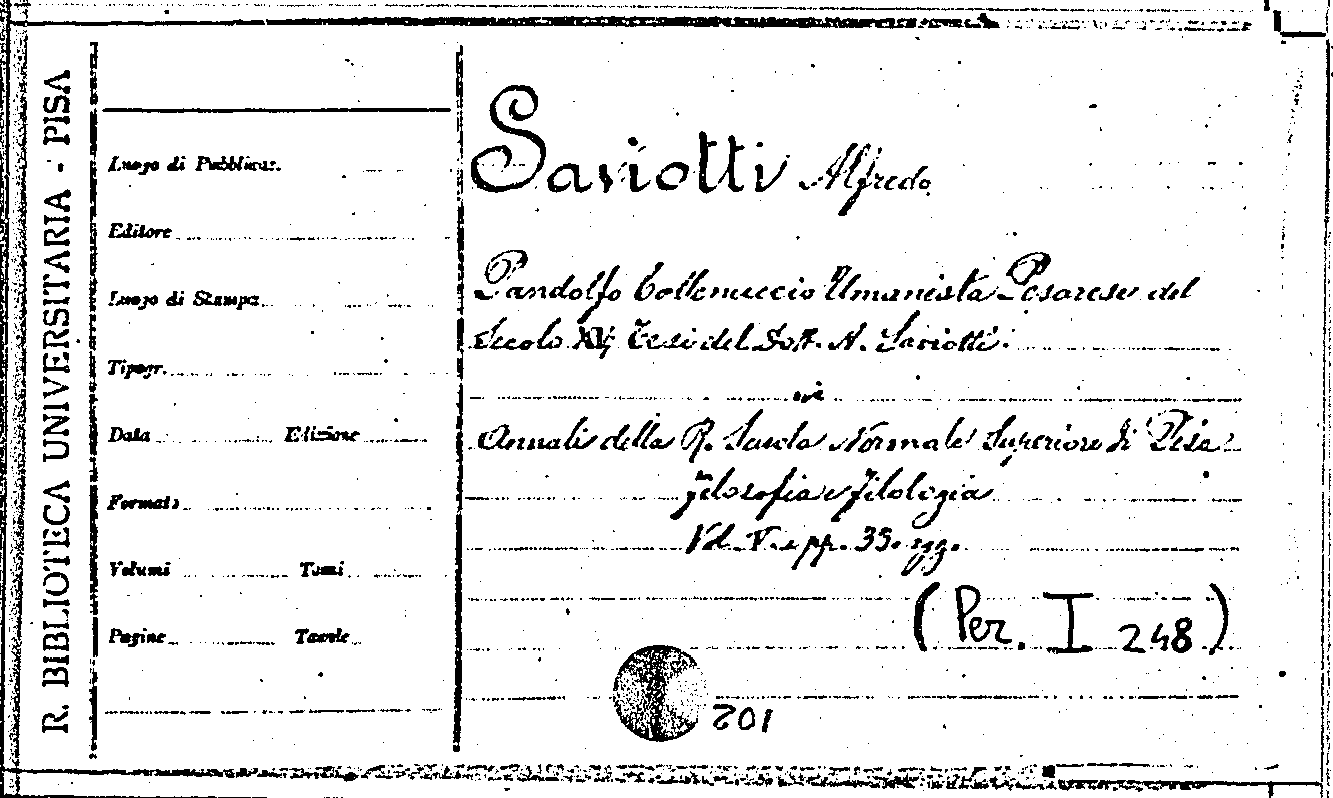 R. BIBLIOTECA UNIVERSITARIA - PISA
Luogo di Pubblicaz.
Editore
Luogo di Stampa
Tipogr.
Data Edizione
Formato
Volumi Tomi
Pagine Tavole
Saviotti Alfredo
Pandolfo Collenuccio Umanista Pesarese del
Secolo XV; Tesi del Dott. A. Saviotti.
in
Annali della R. Scuola Normale Superiore di Pisa
Filosofia e Filologia
Vol. V. pp. 35. sgg.
(Per. I 248)
201